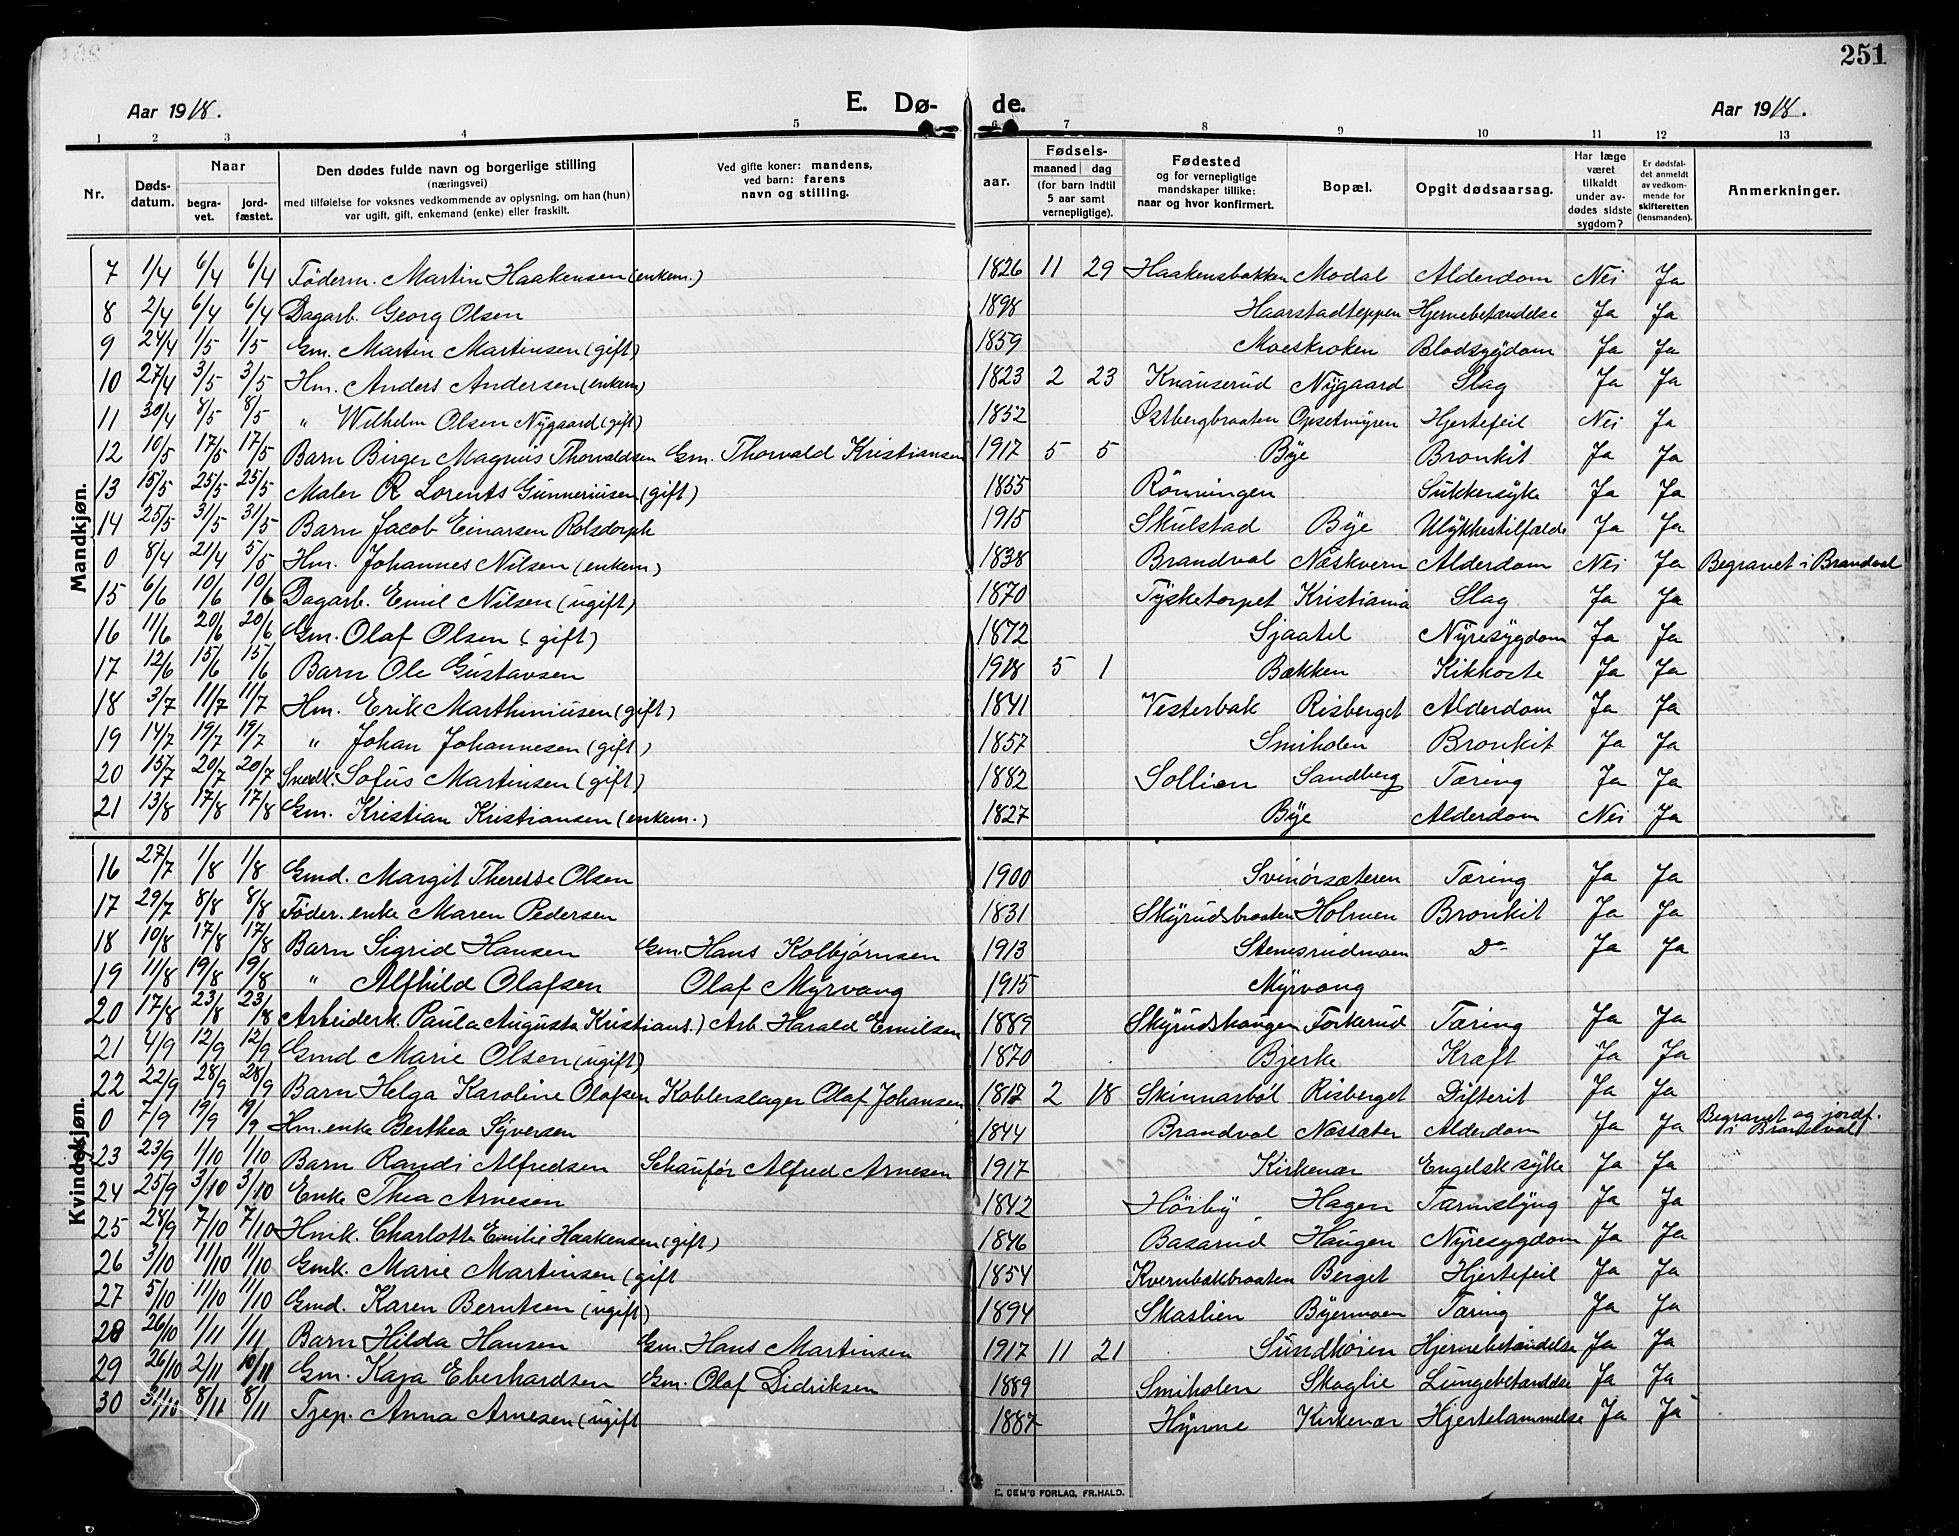 251
Aar 1918. E. Dø- de. Aar 1918.
1 2 3 4 5 6 7 8 9 10 11 12 13
Nr. Døds-datum. Naar begra-vet. jord-fæstet. Den dødes fulde navn og borgerlige stilling (næringsvei) med tilføielse for voksnes vedkommende av oplysning, om han (hun) var ugift, gift, enkemand (enke) eller fraskilt. Ved gifte koner: mandens, ved barn: farens navn og stilling. aar. Fødsels- maaned dag (for barn indtil 5 aar samt vernepligtige). Fødested og for vernepligtige mandskaper tillike: naar og hvor konfirmert. Bopæl. Opgit dødsaarsag. Har læge været tilkaldt under av-dødes sidste sygdom? Er dødsfal-det anmeldt av vedkom-mende for skifteretten (lensmanden). Anmerkninger.
Mandkjøn.
7 1/4 6/4 6/4 Føderm. Martin Haakensen (enkem.) 1826 11 29 Haakensbakken Modal Alderdom Nei Ja
8 2/4 6/4 6/4 Dagarb. Georg Olsen 1898 Haarstadteppen Hjernebetændelse Ja Ja
9 24/4 1/5 1/5 Gm. Martin Martinsen (gift) 1859 Moeskroken Blodsygdom Ja Ja
10 27/4 3/5 3/5 Hm. Anders Andersen (enkem) 1823 2 23 Knauserud Nygaard Slag Ja Ja
11 30/4 8/5 8/5 " Wilhelm Olsen Nygaard (gift) 1852 Østbergbraaten Opsetmyren Hjertefeil Nei Ja
12 10/5 17/5 17/5 Barn Birger Magnus Thorvaldsen Gm. Thorvald Kristiansen 1917 5 5 Bye Bronkit Ja Ja
13 15/5 25/5 25/5 Maler R Lorents Gunneriusen (gift) 1855 Rönningen Sukkersyke Ja Ja
14 25/5 31/5 31/5 Barn Jacob Einarsen Rolsdorph 1915 Skulstad Bye Ulykkestilfælde Ja Ja
0 8/4 21/4 5/5 Hm. Johannes Nilsen (enkem) 1838 Brandval Næskvern Alderdom Nei Ja Begravet i Brandval
15 6/6 10/6 10/6 Dagarb. Emil Nilsen (ugift) 1870 Tysketorpet Kristiania Slag Ja Ja
16 11/6 20/6 20/6 Gm. Olaf Olsen (gift) 1872 Sjaatel Nyresygdom Ja Ja
17 12/6 15/6 15/6 Barn Ole Gustavsen 1918 5 1 Bækken Kikhoste Ja Ja
18 3/7 11/7 11/7 Hm. Erik Marthiniusen (gift) 1841 Vesterbak Risberget Alderdom Ja Ja
19 14/7 19/7 19/7 " Johan Johannesen (gift) 1857 Smiholen Bronkit Ja Ja
20 15/7 20/7 20/7 Snedk. Sofus Martinsen (gift) 1882 Sollien Sandberg Tæring Ja Ja
21 13/8 17/8 17/8 Gm. Kristian Kristiansen (enkem.) 1827 Bye Alderdom Nei Ja
Kvindekjøn.
16 27/7 1/8 1/8 Gmd. Margit Therese Olsen 1900 Svinörsæteren Tæring Ja Ja
17 29/7 8/8 8/8 Föder. enke Maren Pedersen 1831 Skyrudsbraaten Holmen Bronkit Ja Ja
18 10/8 17/8 17/8 Barn Sigrid Hansen Gm. Hans Kolbjørnsen 1913 Stensrudmoen Do Ja Ja
19 11/8 19/8 19/8 " Alfhild Olafsen Olaf Myrvang 1915 Myrvang
20 17/8 23/8 23/8 Arbeiderk. Paula Augusta Kristians.) Arb. Harald Emilsen 1889 Skyrudshaugen Forkerud Tæring Ja Ja
21 4/9 12/9 12/9 Gmd Marie Olsen (ugift) 1870 Bjerke Kræft Ja Ja
22 22/9 28/9 28/9 Barn Helga Karoline Olafsen Koblerslager Olaf Johansen 1817 2 18 Skinnarböl Risberget Difterit Ja Ja
0 7/9 19/9 19/9 Hm. enke Berthea Syversen 1844 Brandval Næssæter Alderdom Ja Ja Begravet og jordf. i Brandval
23 23/9 1/10 1/10 Barn Randi Alfredsen Schauför Alfred Arnesen 1917 Kirkenær Engelsk syke Ja Ja
24 25/9 3/10 3/10 Enke Thea Arnesen 1842 Höiby Hagen Tarmslyng Ja Ja
25 28/9 7/10 7/10 Hmk. Charlotte Emilie Haakensen (gift) 1846 Basarud Haugen Nyresygdom Ja Ja
26 3/10 11/10 11/10 Gmk. Marie Martinsen (gift 1854 Kvernbækbraaten Berget Hjertefeil Ja Ja
27 5/10 11/10 11/10 Gmd. Karen Berntsen (ugift) 1894 Skaslien Byermoen Tæring Ja Ja
28 26/10 1/11 1/11 Barn Hilda Hansen Gm. Hans Martinsen 1917 11 21 Sundköien Hjernebetændelse Ja Ja
29 26/10 2/11 10/11 Gm. Kaja Eberhardsen Gm. Olaf Didriksen 1889 Smiholen Skoglie Lungebetændelse Ja Ja
30 31/10 8/11 8/11 Tjep. Anna Arnesen (ugift 1887 Hymne Kirkenær Hjertelammelse Ja Ja
E. SEM'S FORLAG, FR.HALD.